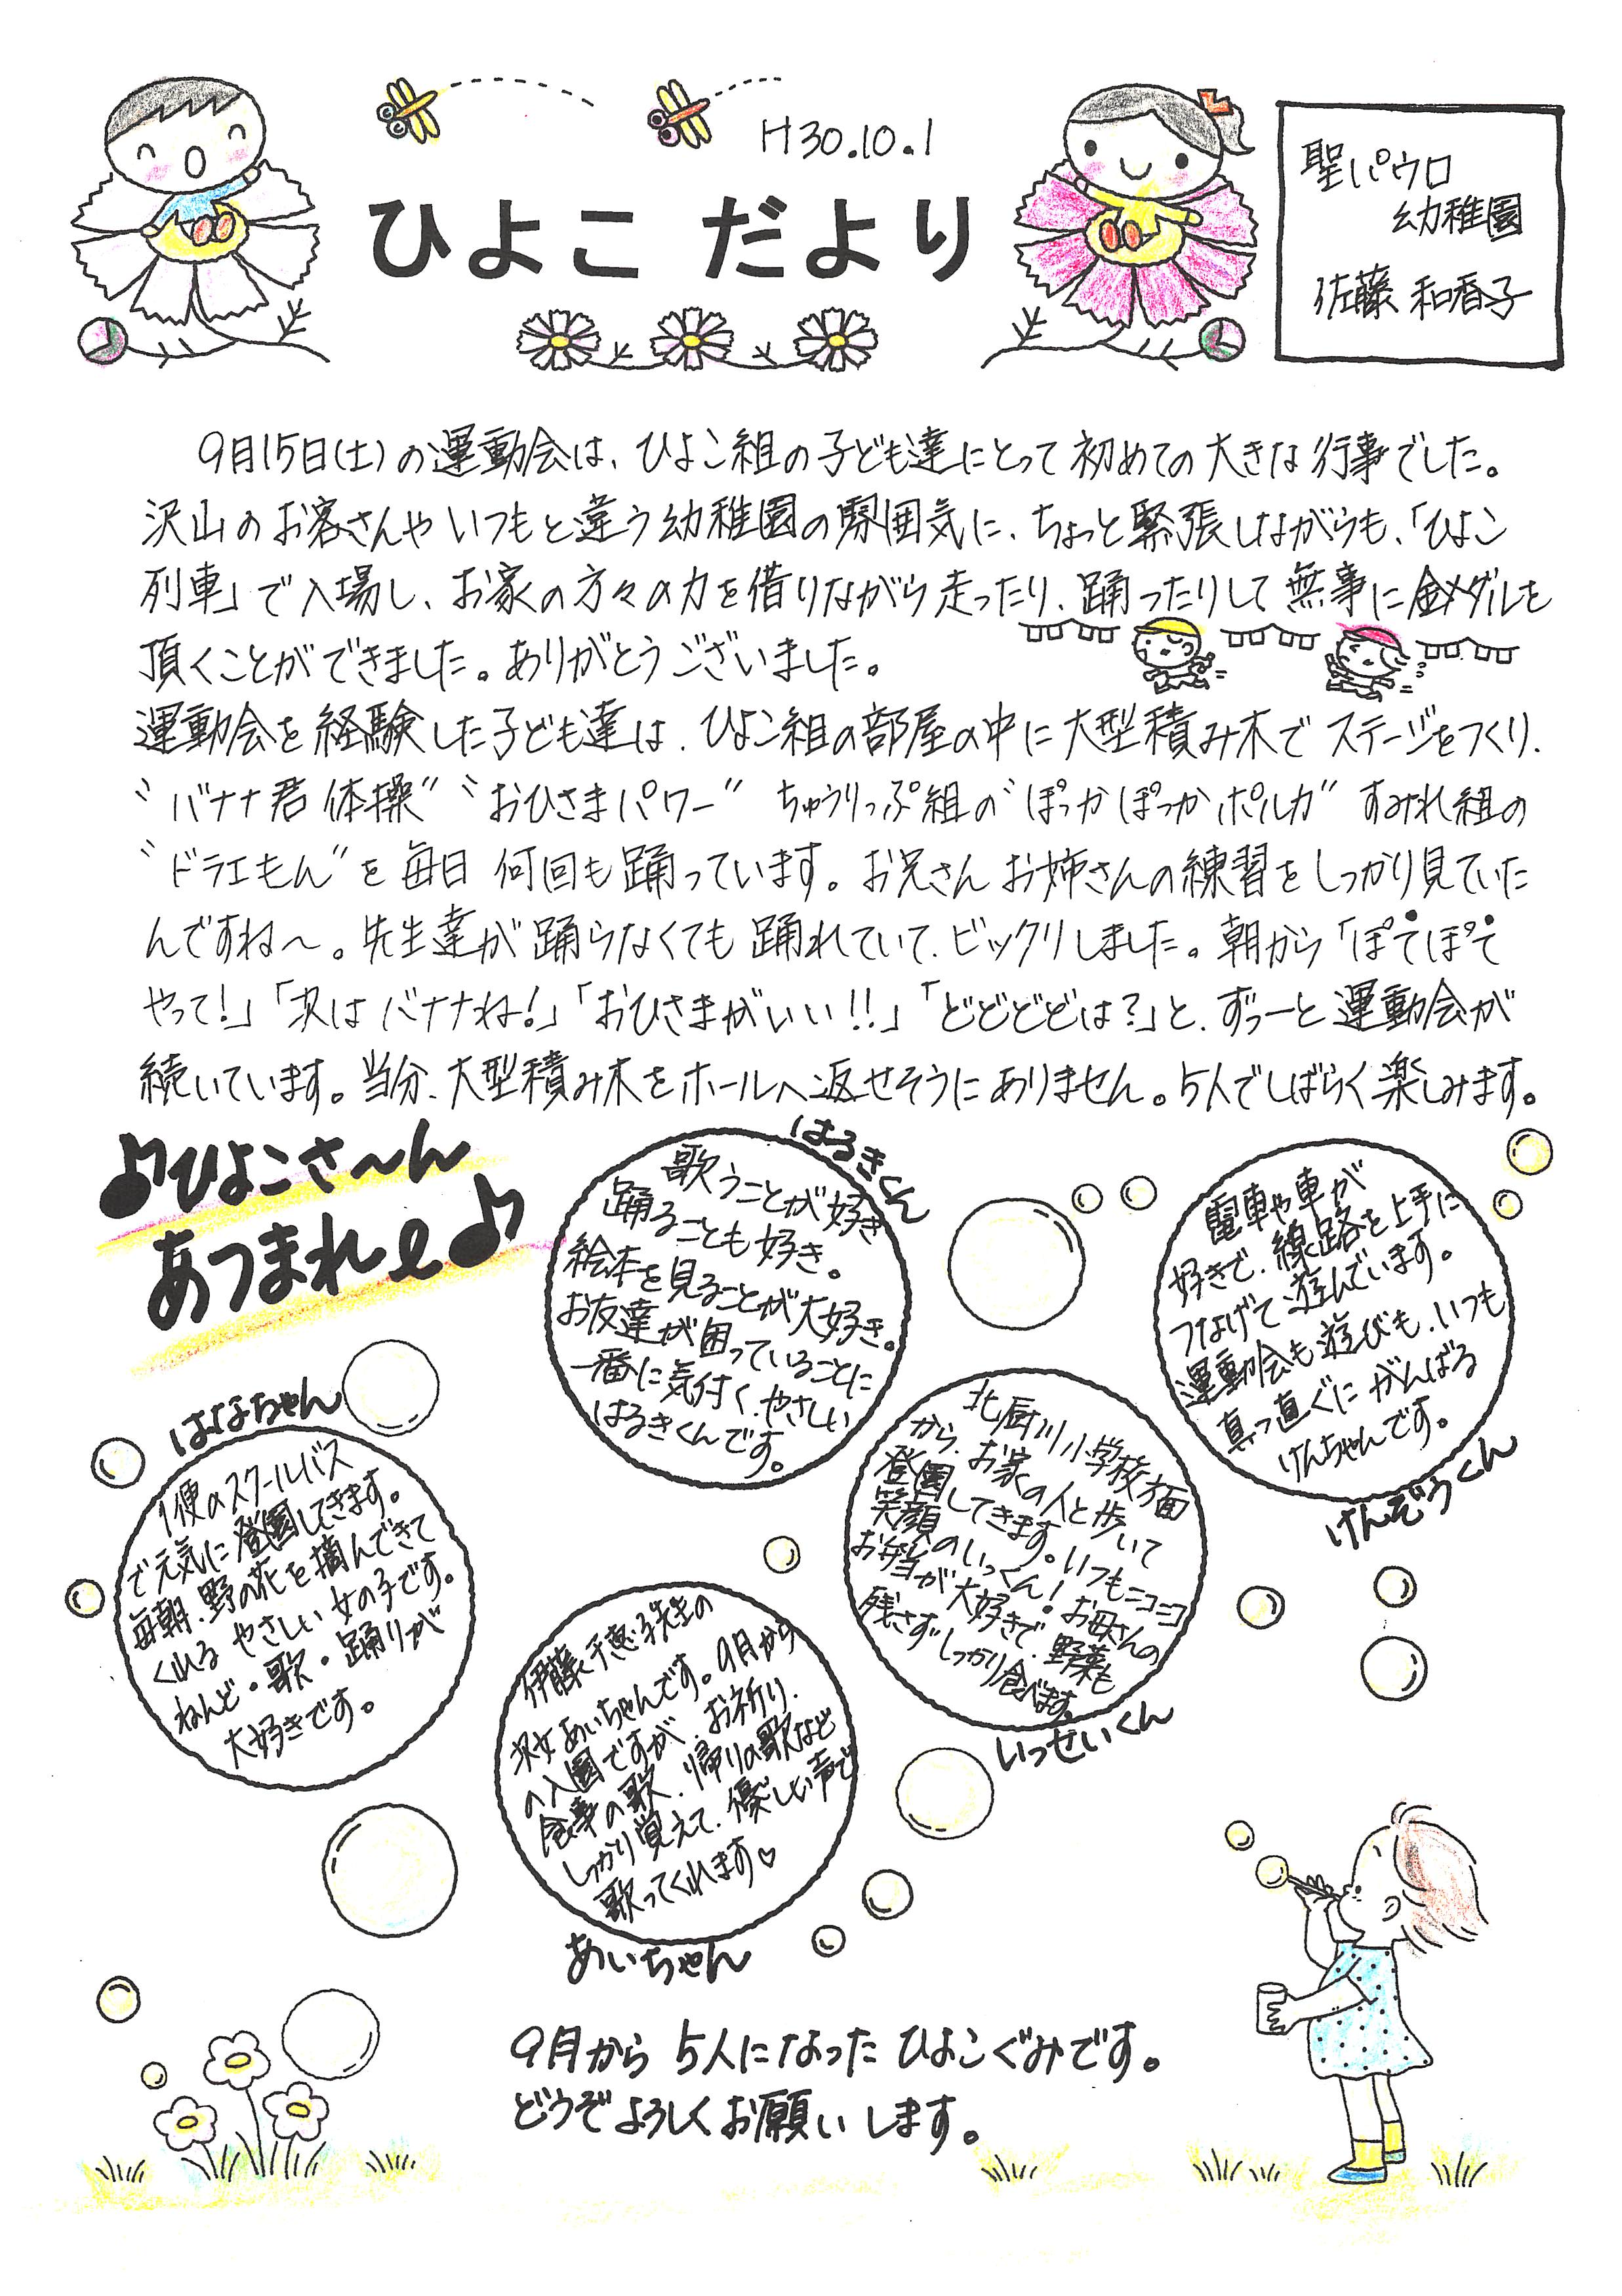 H30.10.1
ひよこ だより
聖パウロ
幼稚園
佐藤 和香子
9月15日(土)の運動会は、ひよこ組の子ども達にとって初めての大きな行事でした。
沢山のお客さんやいつもと違う幼稚園の雰囲気に、ちょっと緊張しながらも、「ひよこ
列車」で入場し、お家の方々の力を借りながら走ったり、踊ったりして無事に金メダルを
頂くことができました。ありがとうございました。
運動会を経験した子ども達は、ひよこ組の部屋の中に大型積み木でステージをつくり、
〝バナナ君体操〞〝おひさまパワー〞ちゅうりっぷ組の〝ぽっかぽっかポルカ〞すみれ組の
〝ドラエもん〞を毎日何回も踊っています。お兄さんお姉さんの練習をしっかり見ていた
んですね〜。先生達が踊らなくても踊れていて、ビックリしました。朝から「ぽてぽて
やって!」「次はバナナね!」「おひさまがいい!!」「どどどどは?」と、ずっーと運動会が
続いています。当分、大型積み木をホールへ返せそうにありません。5人でしばらく楽しみます。
♪ひよこさ〜ん
あつまれ〜♪
はるきくん
歌うことが好き
踊ることも好き。
絵本を見ることが大好き。
お友達が困っていることに
一番に気付く、やさしい
はるきくんです。
電車や車が
好きで、線路を上手に
つなげて遊んでいます。
運動会も遊びも、いつも
真っ直ぐにがんばる
けんちゃんです。
けんぞうくん
はなちゃん
1便のスクールバス
で元気に登園してきます。
毎朝、野の花を摘んできて
くれるやさしい女の子です。
ねんど・歌・踊りが
大好きです。
北厨川小学校方面
から、お家の人と歩いて
登園してきます。いつもニコニコ
笑顔のいっくん!お母さんの
お弁当が大好きで、野菜も
残さずしっかり食べます。
いっせいくん
伊藤千恵子先生の
次女あいちゃんです。9月から
の入園ですが、お祈り、
食事の歌、帰りの歌など
しっかり覚えて、優しい声で
歌ってくれます♡
あいちゃん
9月から5人になったひよこぐみです。
どうぞよろしくお願いします。